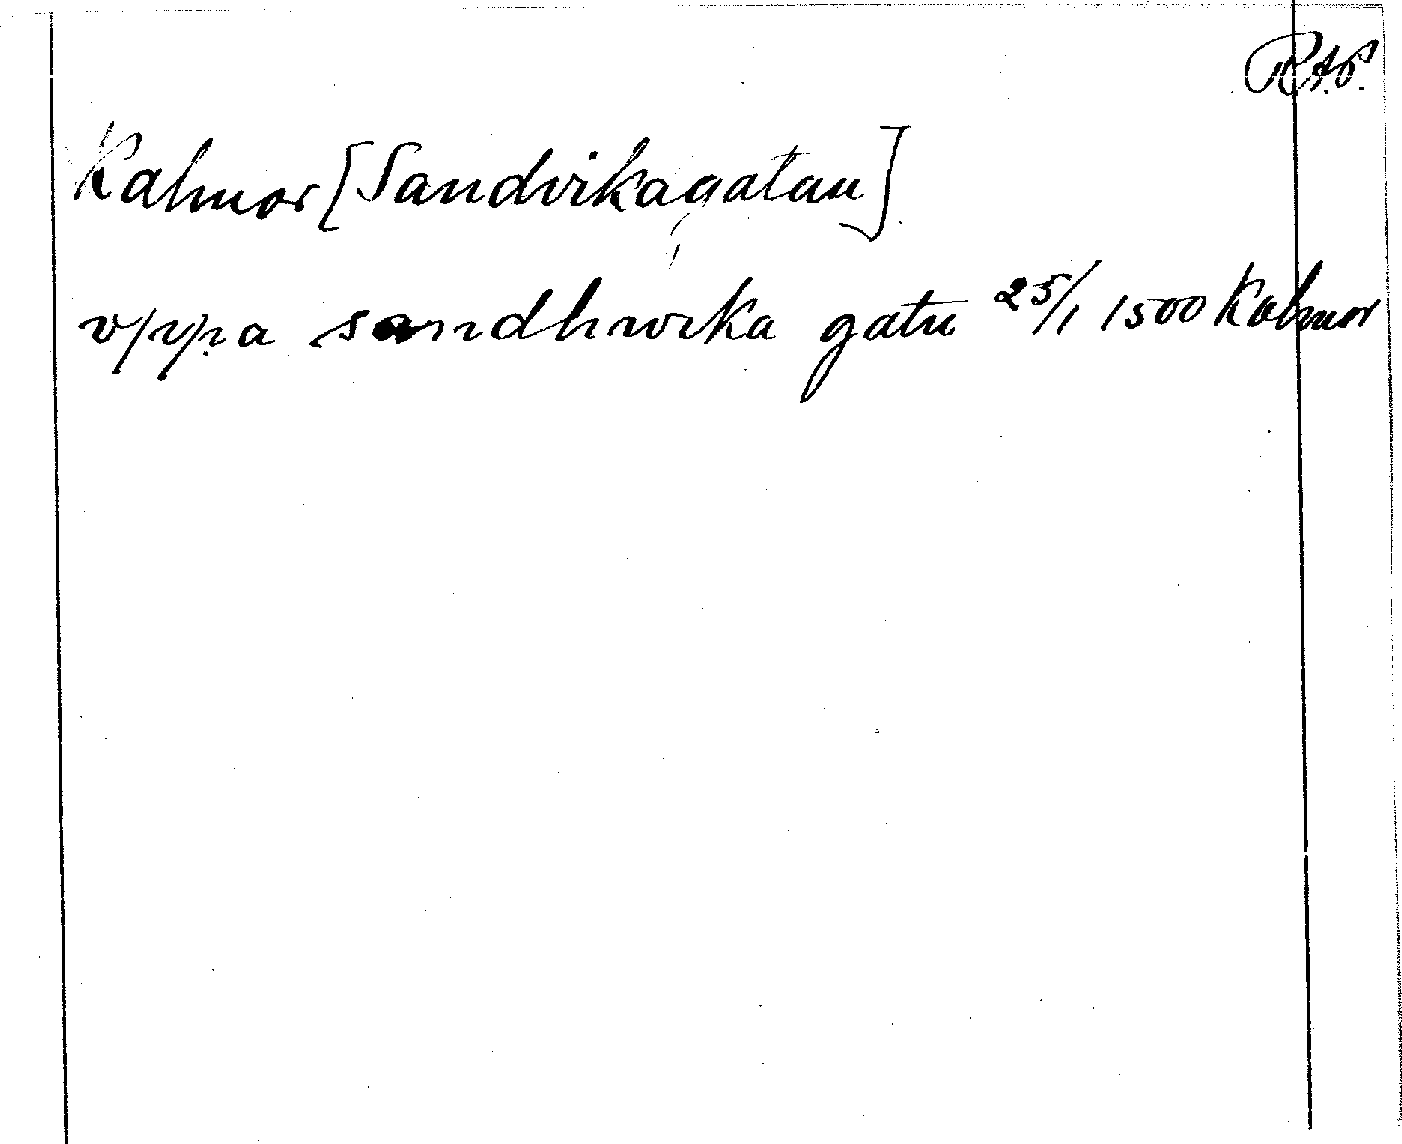 RAP.
Kalmar [Sandvikagatan]
vppa sandhwika gatu 25/1 1500 Kalmar